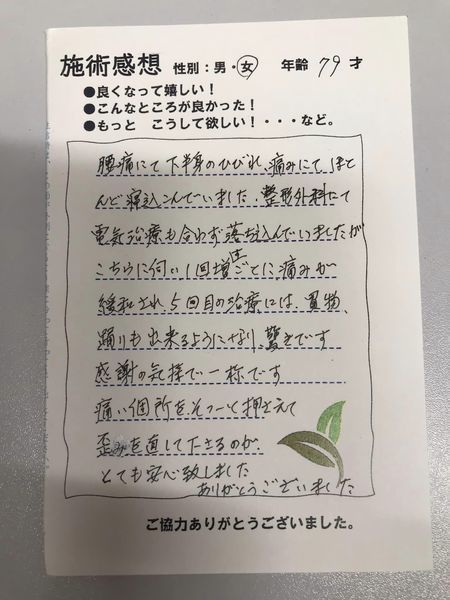 施術感想 性別：男・女 年齢 79 才
●良くなって嬉しい！
●こんなところが良かった！
●もっと こうして欲しい！・・・など。
腰痛にて下半身のひびれ、痛みにて、ほと
んど寝込んでいました、整形外科にて
電気治療も合わず落ち込んでいましたが
こちらに伺い、1回増すごとに、痛みが
緩和され、5回目の治療には、買物、
踊りも出来るようになり、驚きです
感謝の気持で一杯です
痛い個所をそっーと押さえて
歪みを直して下さるのが、
とても安心致しました
ありがとうございました
ご協力ありがとうございました。